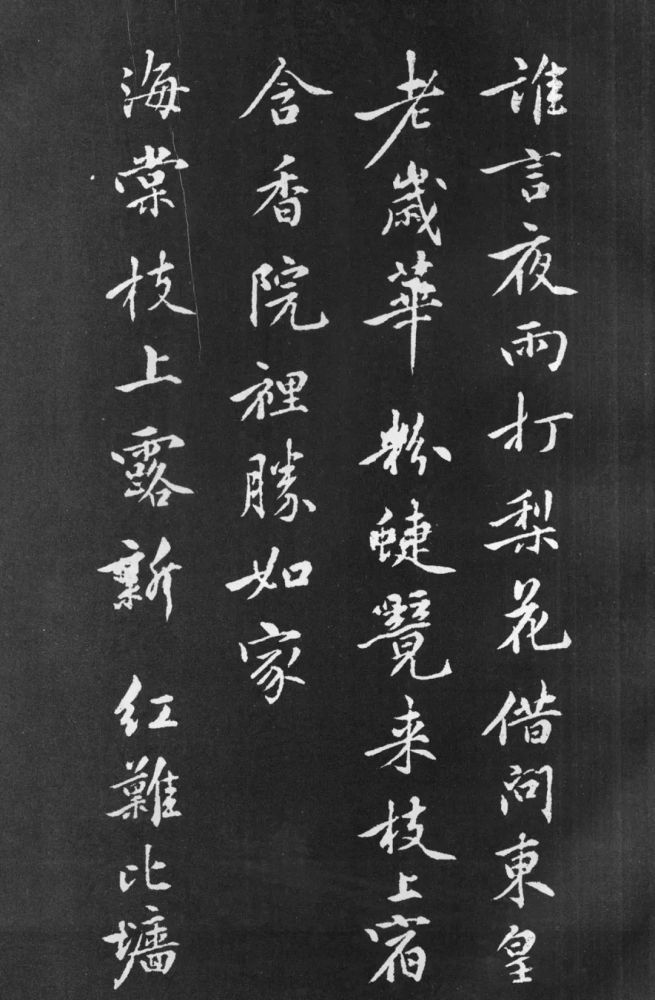 誰言夜雨打梨花借問東皇
老歲華粉蜨覽来枝上宿
含香院裡勝如家
海棠枝上露新紅難比墻